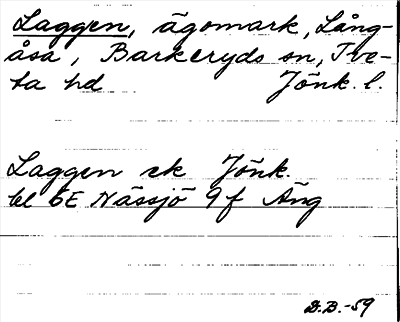 Laggen, ägomark, Lång-
åsa, Barkeryds sn, Tve-
ta hd Jönk. l.
Laggen ek Jönk.
bl 6E Nässjö 9f Äng
D.B.-59